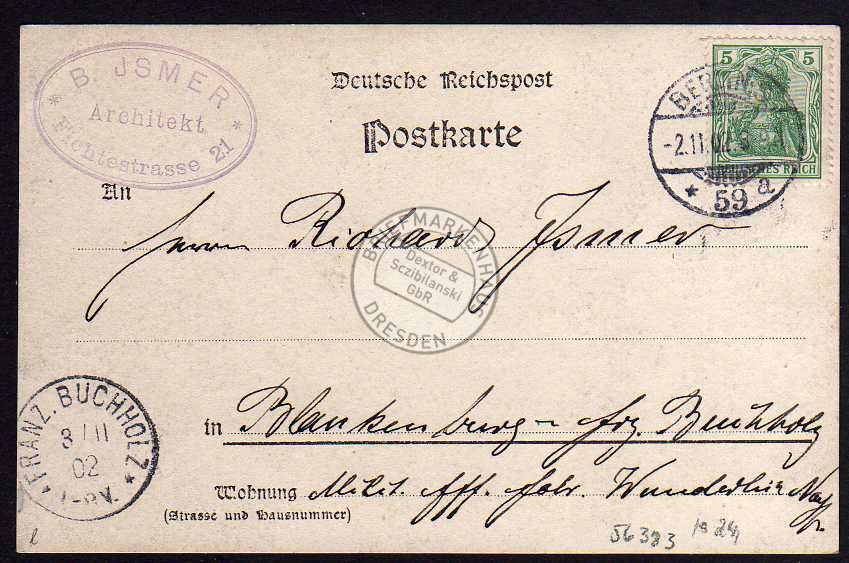 B. JSMER
Architekt
Fichtestrasse 21
Deutsche Reichspost
Postkarte
5 5
DEUTSCHES REICH
BERLIN
-2.11.02.
* 59 a
An
Herrn Richard Ismer
BRIEFMARKENHAUS
Dextor &
Sczibilanski
GbR
DRESDEN
*FRANZ. BUCHHOLZ*
3/11
02
in Blankenburg - frz. Buchholz
Wohnung Milit. Eff. Fabr. Wunderlich Nachf.
(Strasse und Hausnummer)
56383